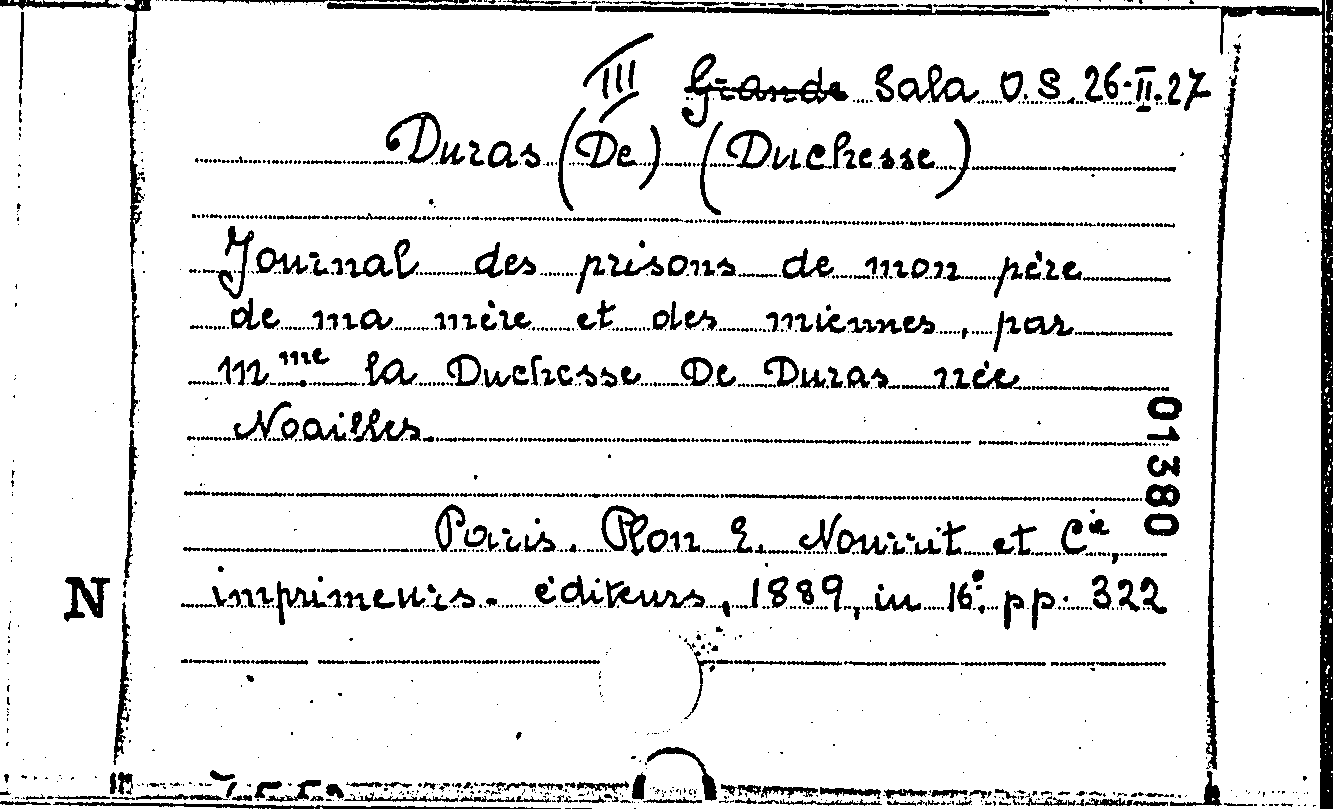 III Grande Sala O.S. 26-II.27
Duras (De) (Duchesse)
Journal des prisons de mon père
de ma mère et des miennes, par
Mme la Duchesse De Duras née
Noailles.
01380
Paris. Plon E. Nourrit et Cie,
imprimeurs-éditeurs, 1889, in 16° pp. 322
N